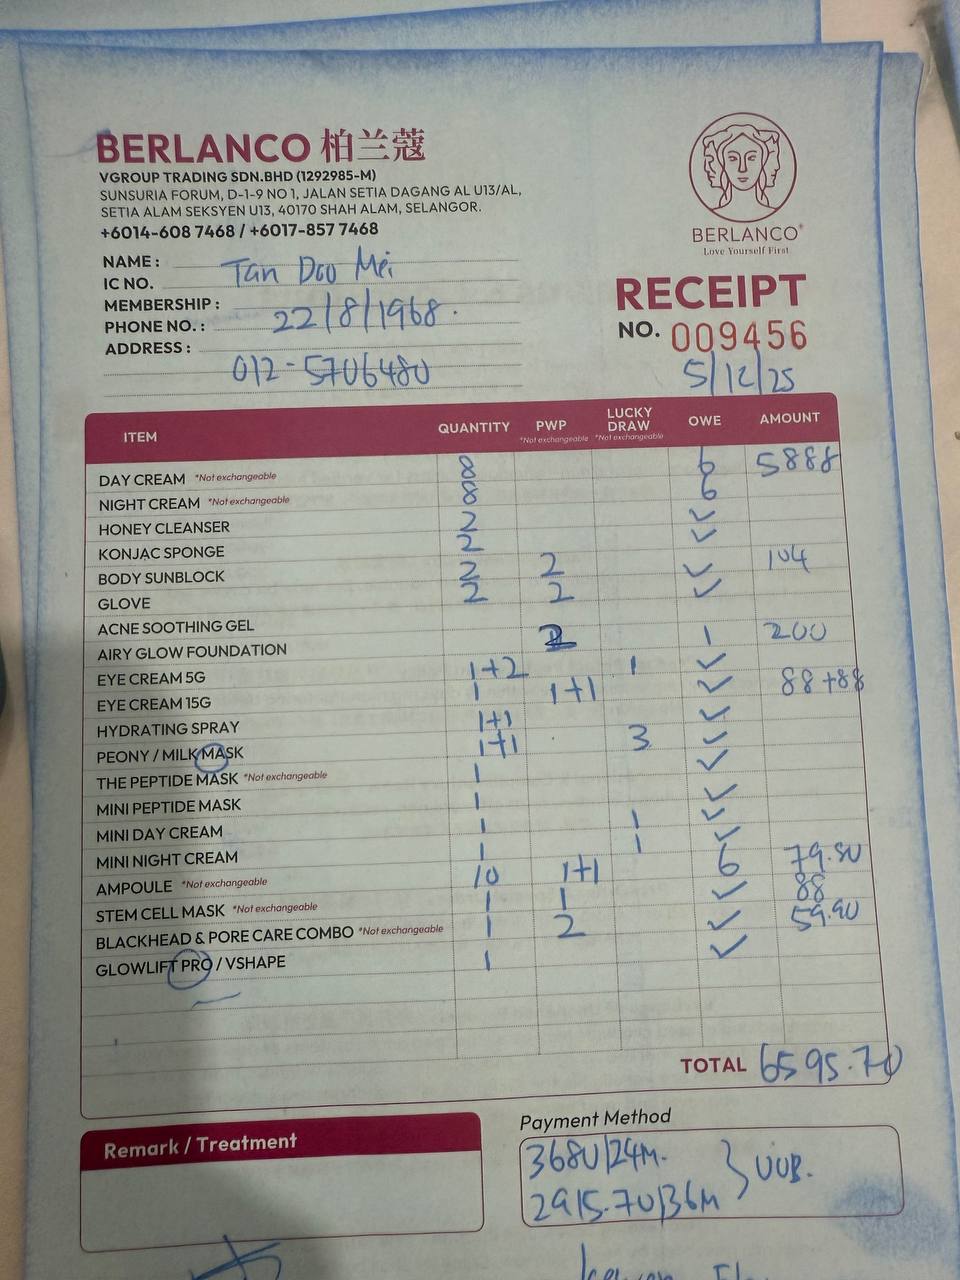 BERLANCO 柏兰蔻
VGROUP TRADING SDN.BHD (1292985-M)
SUNSURIA FORUM, D-1-9 NO 1, JALAN SETIA DAGANG AL U13/AL,
SETIA ALAM SEKSYEN U13, 40170 SHAH ALAM, SELANGOR.
+6014-608 7468 / +6017-857 7468
BERLANCO®
Love Yourself First
NAME : Tan Doo Mei
IC NO.
MEMBERSHIP : 22/8/1968.
PHONE NO. :
ADDRESS : 012-5706480
RECEIPT
NO. 009456
5/12/25
ITEM QUANTITY PWP *Not exchangeable LUCKY DRAW *Not exchangeable OWE AMOUNT
DAY CREAM *Not exchangeable 8 6 5888
NIGHT CREAM *Not exchangeable 8 6
HONEY CLEANSER 2 ✓
KONJAC SPONGE 2 ✓
BODY SUNBLOCK 2 2 ✓ 104
GLOVE 2 2 ✓
ACNE SOOTHING GEL
AIRY GLOW FOUNDATION 1 200
EYE CREAM 5G 1+2 1 ✓
EYE CREAM 15G 1 1+1 ✓ 88+88
HYDRATING SPRAY 1+1 ✓
PEONY / MILK MASK 1+1 3 ✓
THE PEPTIDE MASK *Not exchangeable 1 ✓
MINI PEPTIDE MASK 1 ✓
MINI DAY CREAM 1 1 ✓
MINI NIGHT CREAM 1 1 ✓
AMPOULE *Not exchangeable 10 1+1 6 79.80
STEM CELL MASK *Not exchangeable 1 1 ✓ 88
BLACKHEAD & PORE CARE COMBO *Not exchangeable 1 2 ✓ 59.90
GLOWLIFT PRO / VSHAPE 1 ✓
TOTAL 6595.70
Remark / Treatment
Payment Method
3680/24M.
2915.70/36M } UOB.